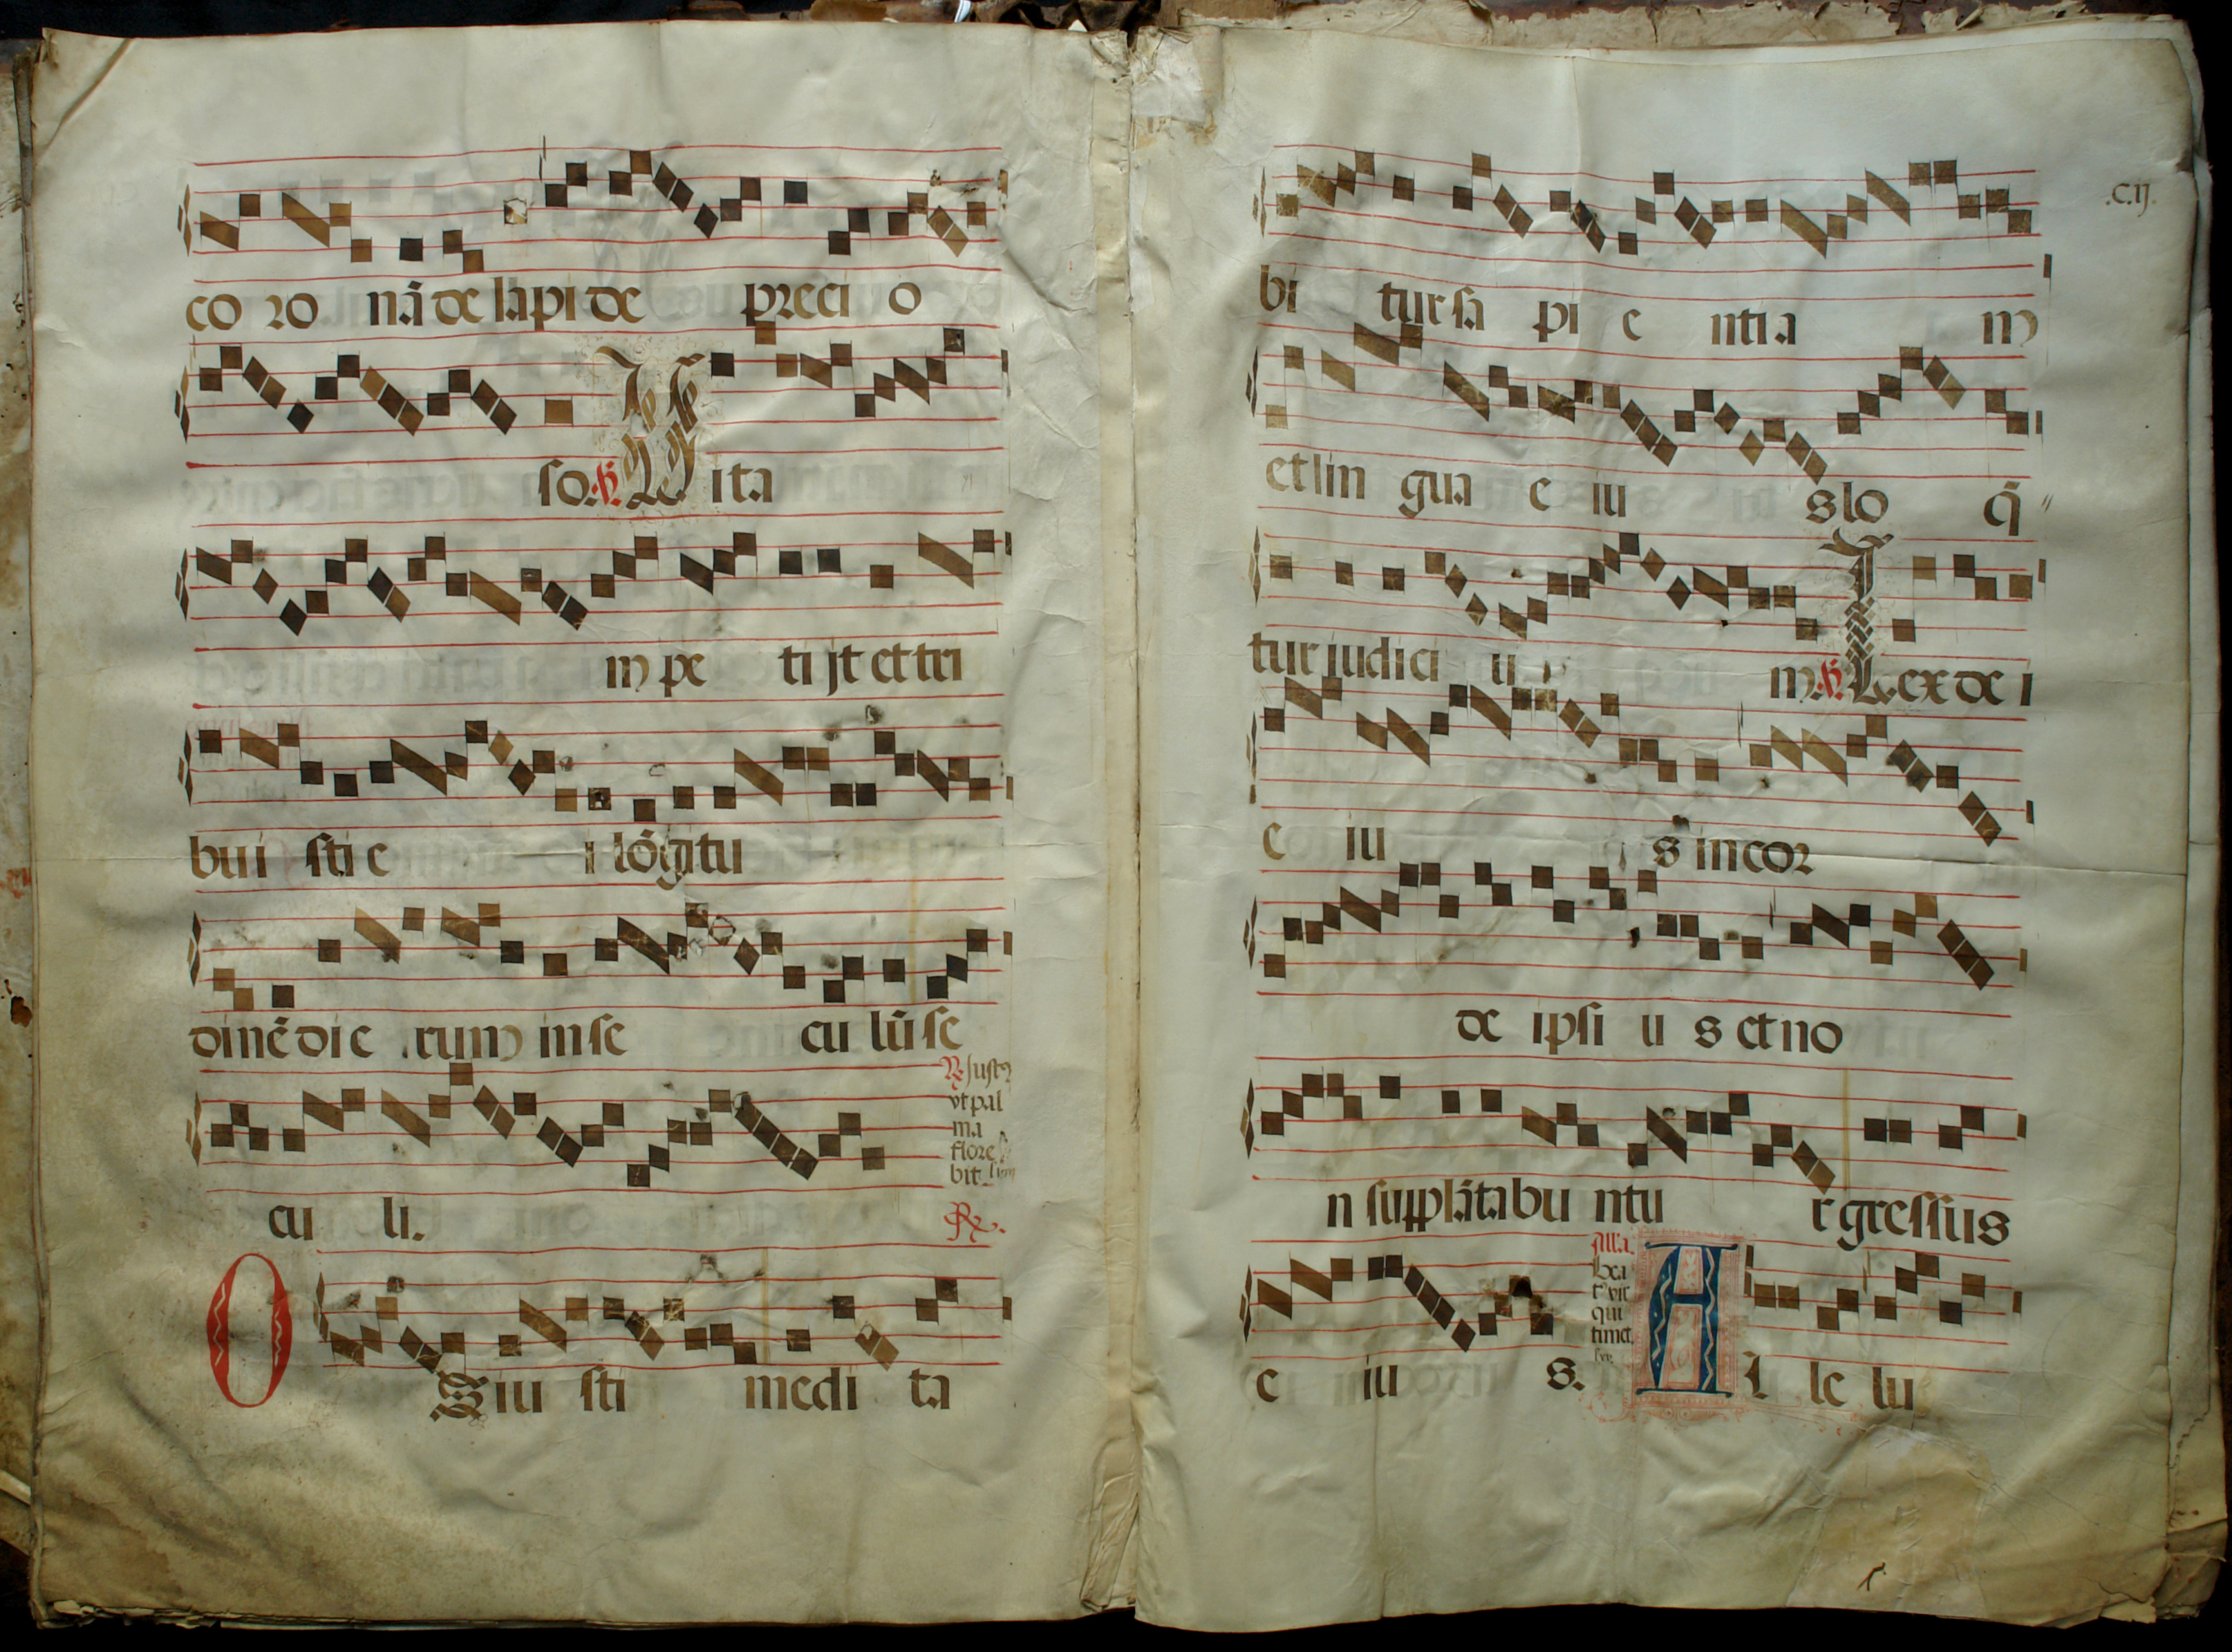 co ro nā de lapi de preci o
so. ℣. Vita
m pe ti jt et tri
bui sti e i lōgitu
dinē di e rum in se cu lū se
℟ Justꝰ
vt pal
ma
flore
bit
cu li. ℟.
O
S iu sti medi ta
.c.ij.
bi tur sa pi e nti a m
et lin gua e iu s lo q̄
tur judici u m ℣. Lex de i
e iu s in cor
de ipsi u s et no
n supplātabu ntu r gressus
Alla.
Bea
tꝰ vir
qui
timet
e iu s. A l le lu